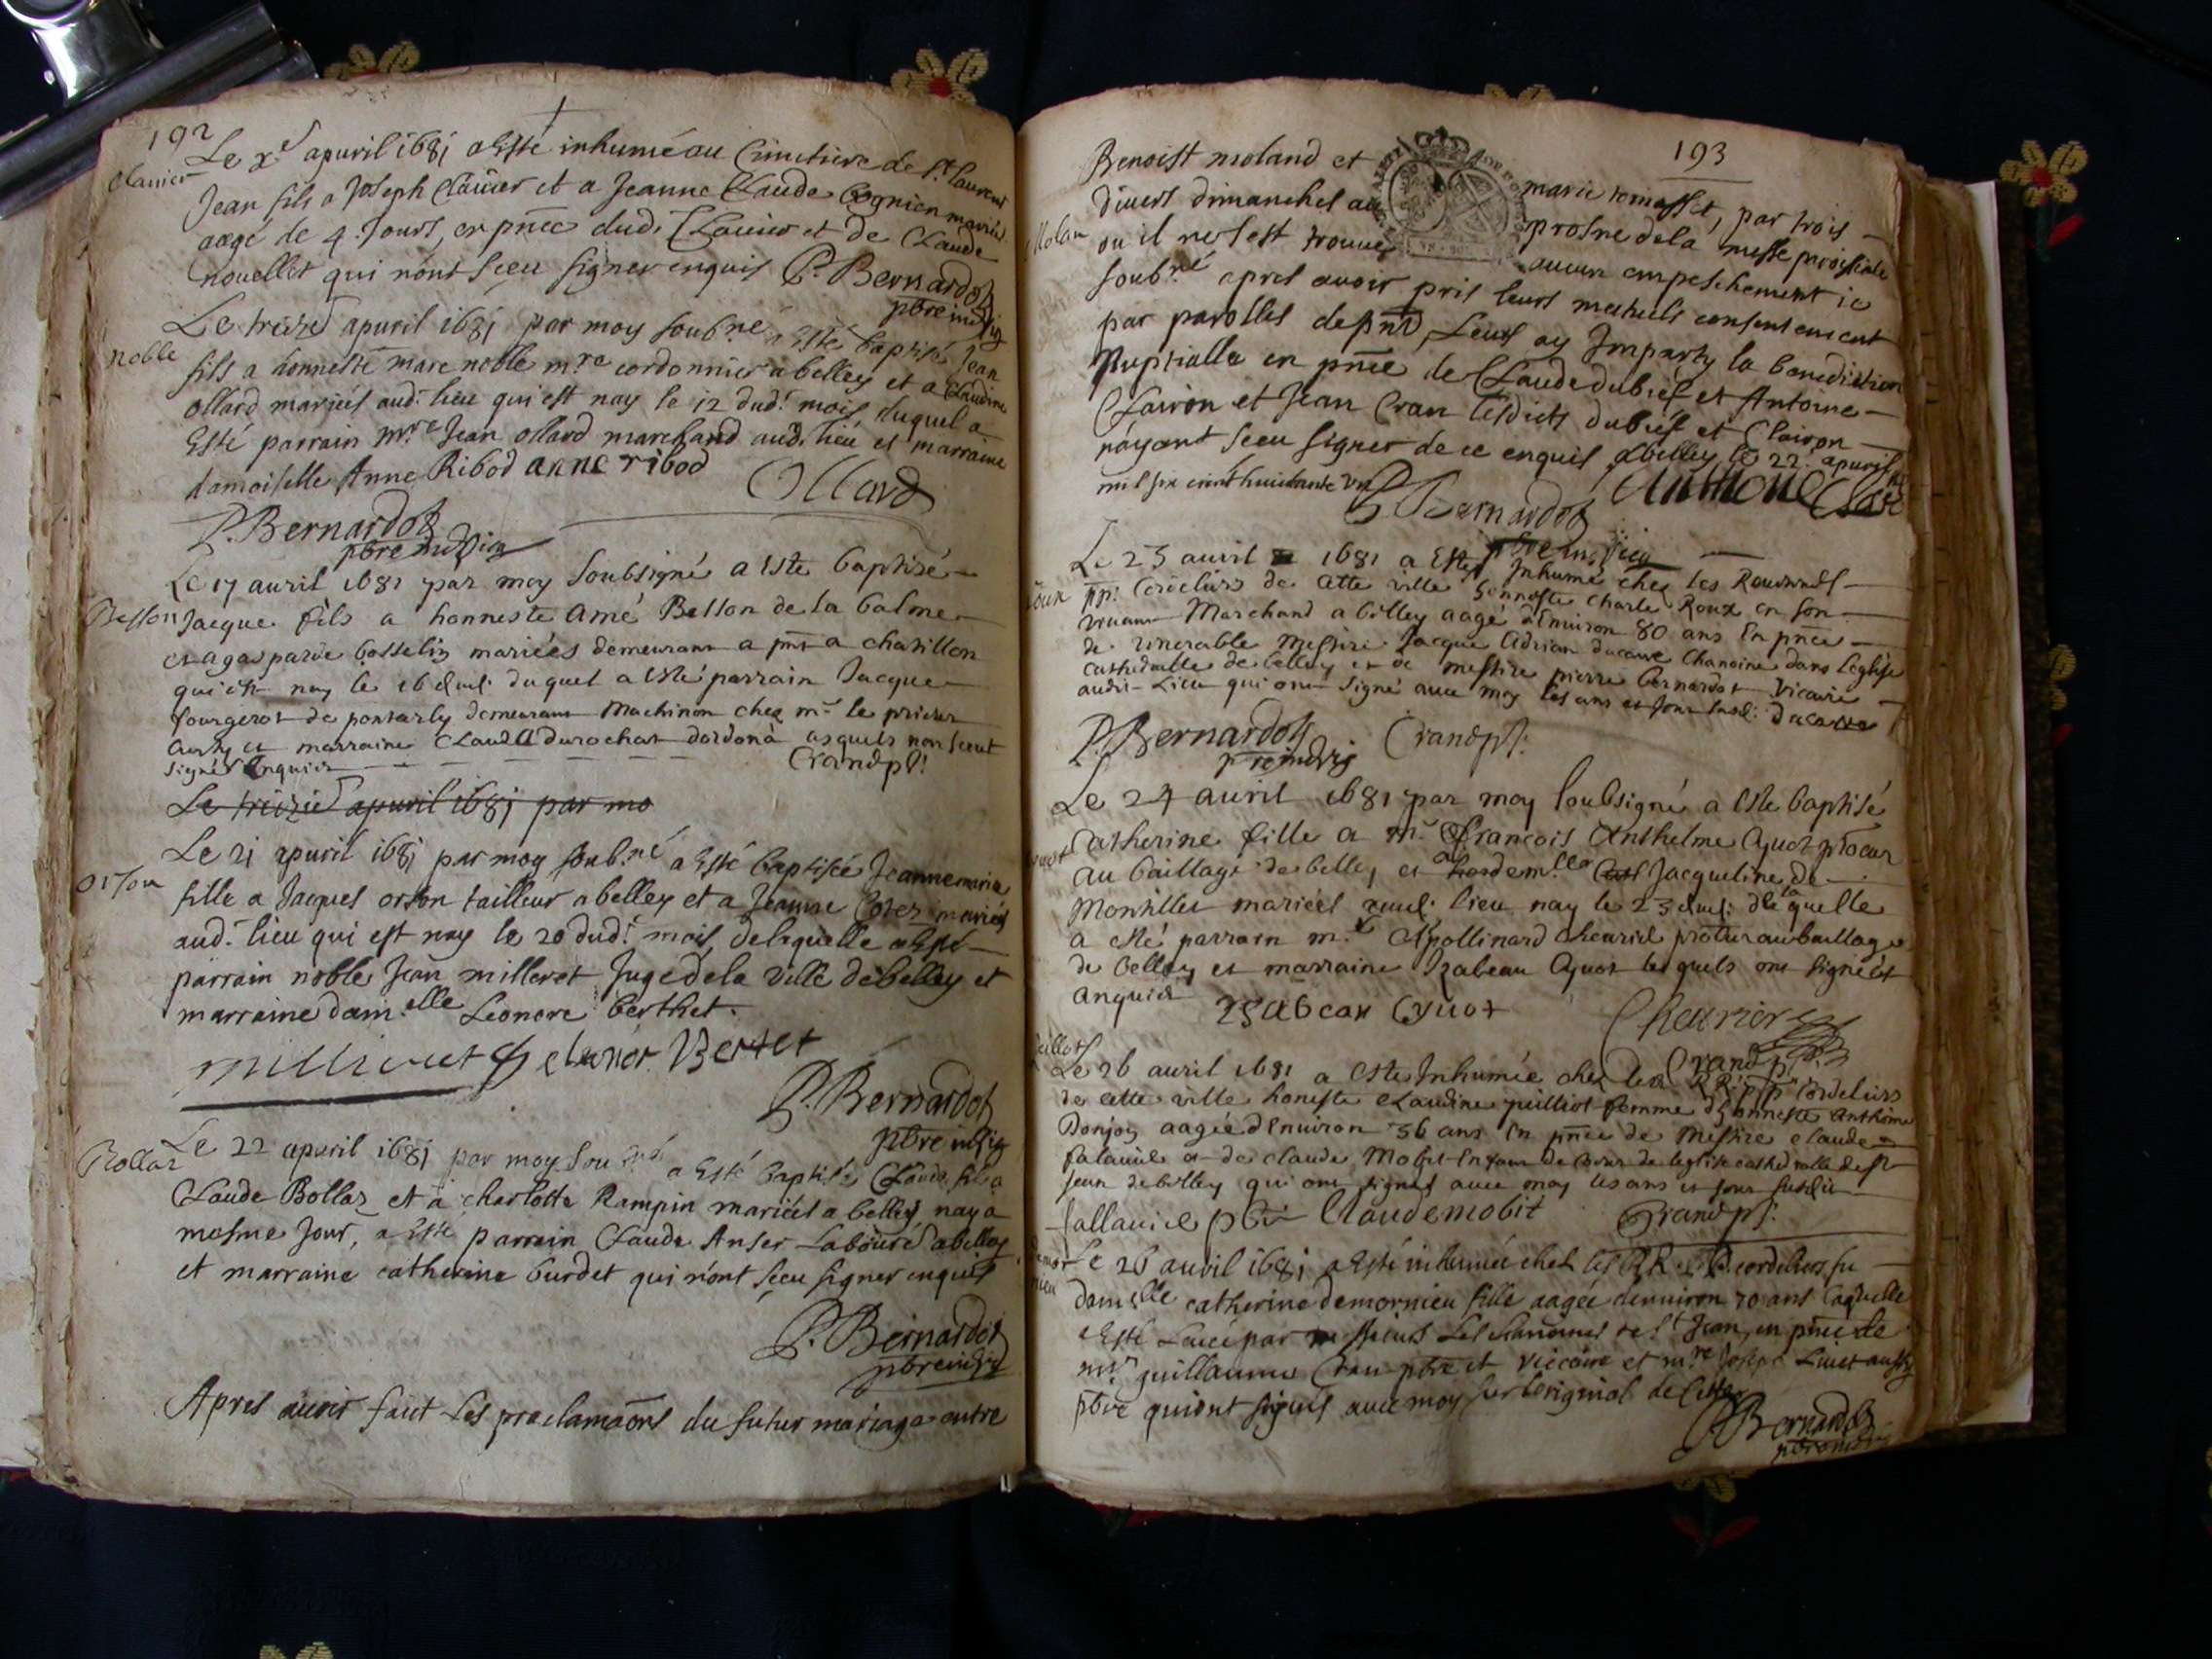 192
Le xe apuril 1681 a Esté inhumé au Cimetiere de St. laurent
Clauier
Jean fils a Joseph Clauier et a Jeanne Claude Cognien mariés
aagé de 4. Jours, en pnce dud. Clauier et de Claude
nouellet qui nont sceu signer enquis P. Bernardot
pbre
Le treize apuril 1681 par moy soubné a Esté baptisé Jean
noble
fils a honneste marc noble mre cordonnier a belley et a Claudine
ollard mariés aud. lieu qui est nay le 12 dud. mois duquel a
Esté parrain mre Jean ollard marchand aud. lieu et marraine
damoiselle Anne Ribod anne ribod Ollard
P. Bernardot
pbre
Le 17 auril 1681 par moy soubsigné a esté baptisé
Bellon
Jacque fils a honneste Amé Bellon de la balme
et a gasparde Gosselin mariées demeurans a pnt a chatillon
qui est nay le 16 dud. duquel a esté parrain Jacque
fourgerot de pontarly demeurant Machinon chez mr le prieur
et marraine Clauda durochat dordona asquels non sceut
signér enquis Crand pb.
Le treizie apuril 1681 par mo
Le 21 apuril 1681 par moy soubné a Esté baptisée Jeanne marie
orson
fille a Jacques orson tailleur a belley et a Jeanne Cotez mariés
aud. lieu qui est nay le 20 dud. mois, de laquelle a Esté
parrain noble Jean milleret Juge de la ville de belley et
marraine damelle Leonore berthet.
milleret elianor Bertet
P. Bernardot
pbre
Le 22 apuril 1681 par moy soubné a Esté baptisé Claude fils a
Bollaz
Claude Bollaz et a charlotte Rampin mariés a belley nay a
mesme Jour, a Esté parrain Claude Anser Laboure a belley
et marraine catherine burdet qui nont sceu signer enquis
P. Bernardot
pbre
Apres auoir faict les proclamaons du futur mariage entre
193
Benoist moland et marie tomasset, par trois
diuers dimanches au prosne de la messe paroissiale
Molan
ou il ne sest trouué aucun empeschement ie
soubné apres auoir pris leurs mutuels consentement
par parolles de pnt, Leurs ay Imparty la benediction
Nuptialle en pnce de Claude dubief et Antoine
Clairon et Jean Cran lesdicts dubief et Clairon
nayant sceu signer de ce enquis a belley le 22 apuril
mil six cent huictante un P. Bernardot Anthoine
Le 23 auril 1681 a Esté Inhumé chez les Reuerends
Roux
pp. Cordeliers de cette ville honneste Charle Roux en son
viuant Marchand a belley aagé denuiron 80 ans En pnce
de venerable Messire Jacque Adrian ducarre Chanoine dans leglise
cathedralle de belley et de messire pierre bernardot vicaire
audit Lieu qui ont signé auec moy les ans et jour susd. ducarre
P. Bernardot Crand pb.
Le 24 auril 1681 par moy soubsigné a esté baptisé
Catherine fille a mr François Anthelme Cyuot procur
au baillage de belley et a demlle Jacqueline de
Montillet mariéés aud. lieu nay le 23 dud. de la quelle
a esté parrain mr Apollinard Cheurier procur au baillage
de belley et marraine Izabeau Cyuot lesquels ont signé les
anquis isabeau Cyuot Cheurier
Crand p.
Le 26 auril 1681 a esté Inhumée chez les RR. pp. Cordeliers
de cette ville honeste Claudine guilliot femme dhonneste Anthoine
Donjon aagée denuiron 36 ans En pnce de Messire claude
falauie et de claude Mobit Enfant de coeur de leglise cathedralle de st
Jean de belley qui ont signes auec moy les ans et jour susdit
fallauie pbr Claude mobit Crand pb.
Le 26 auril 1681 a Esté inhumée chez les RR. PP. cordeliers fu
damelle catherine demornieu fille aagée denuiron 70 ans laquelle
a Esté Leuée par messieurs Les chanoines de St Jean, en pnce de
mre guillaume Cran pbre et viccaire et mre Joseph Liuet aussy
pbre qui ont signés auec moy sur loriginal de
P. Bernardot